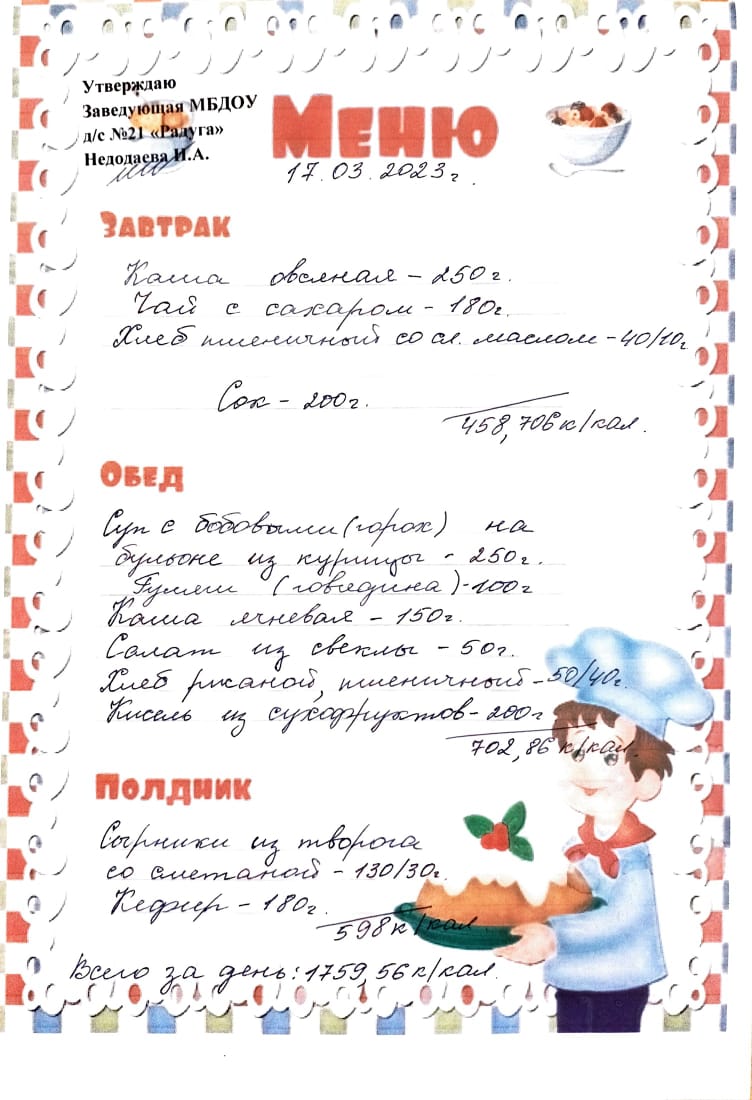 Утверждаю
Заведующая МБДОУ
д/с №21 «Радуга»
Недодаева И.А.
Меню
17.03.2023г.
Завтрак
Каша овсяная – 250г.
Чай с сахаром – 180г.
Хлеб пшеничный со сл. маслом – 40/10г
Сок – 200г.
458,706 к/кал.
Обед
Суп с бобовыми (горох) на
бульоне из курицы - 250г.
Гуляш (говядина) - 100г
Каша ячневая – 150г.
Салат из свеклы – 50г.
Хлеб ржаной, пшеничный – 50/40г.
Кисель из сухофруктов – 200г
702,86 к/кал.
Полдник
Сырники из творога
со сметаной – 130/30г.
Кефир – 180г.
598 к/кал.
Всего за день: 1759,56 к/кал.